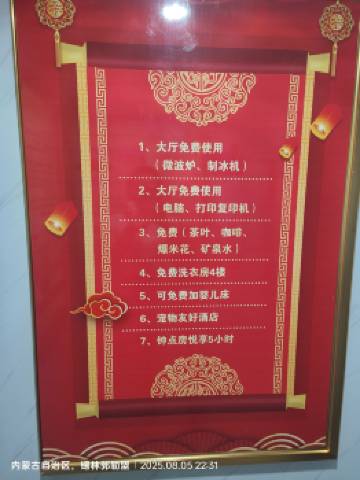 1、大厅免费使用
（微波炉、制冰机）
2、大厅免费使用
（电脑、打印复印机）
3、免费（茶叶、咖啡、
爆米花、矿泉水）
4、免费洗衣房4楼
5、可免费加婴儿床
6、宠物友好酒店
7、钟点房悦享5小时
内蒙古自治区，锡林郭勒盟 | 2025.08.05 22:31